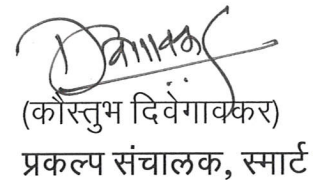 (कौस्तुभ दिवेगावकर)
प्रकल्प संचालक, स्मार्ट